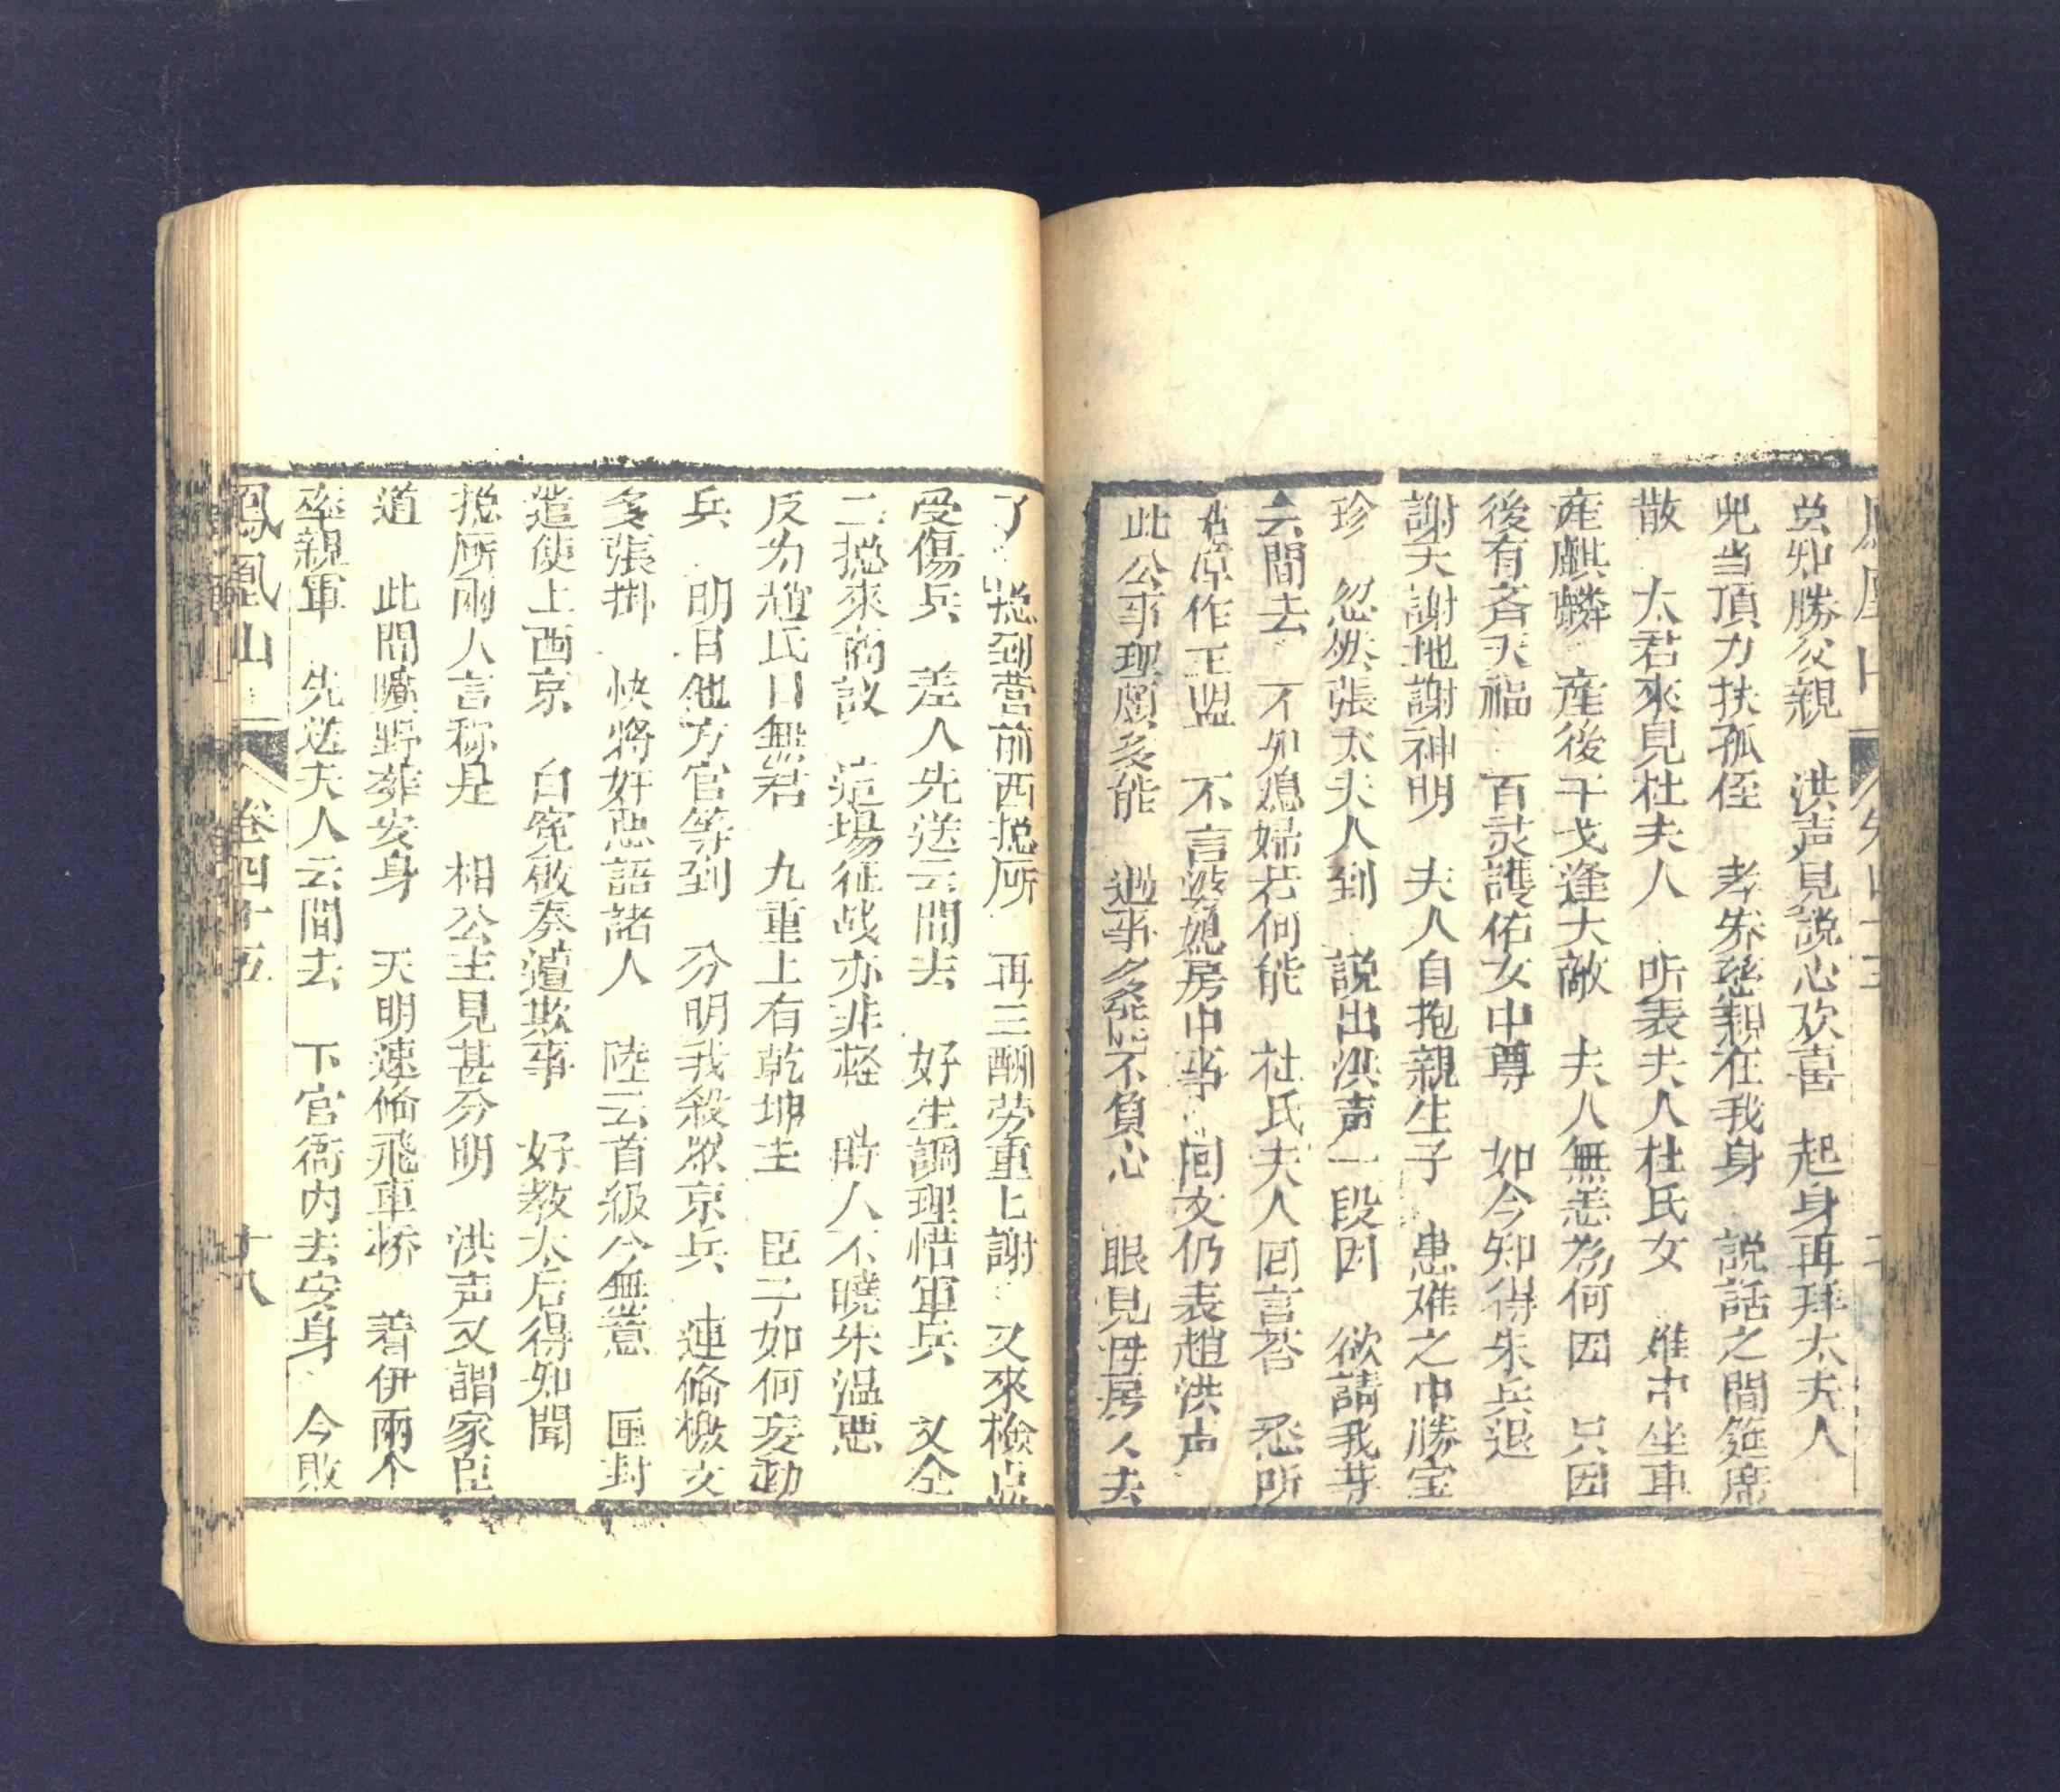 鳳凰山 卷四十五
並知勝父親 洪声見説心欢喜 起身再拜太夫人
兇当頂力扶孤侄 孝养慈親在我身 説話之間筵席
散 太君來見杜夫人 听表夫人杜氏女 难中坐車
産麒麟 産後干戈逢大敵 夫人無恙為何因 只因
後有斉天福 百灵護佑女中尊 如今知得朱兵退
謝天謝地謝神明 夫人自抱親生子 患难之中勝宝
珍 忽然張太夫人到 説出洪声一段因 欲請我等
云間去 不知媳婦若何能 杜氏夫人回言荅 悉听
姑原作主盟 不言婆媳房中事 回文仍表趙洪声
此公事理頗多能 遇事多能不負心 眼見母房人去
了 抽到营前西挩所 再三酬劳重上謝 又來檢点
受傷兵 差人先送云間去 好生調理惜軍兵 又仝
二挩來商議 這場征战亦非軽 時人不曉朱温惡
反为趙氏目無君 九重上有乾坤主 臣子如何妄動
兵 明日他方官等到 分明我殺眾京兵 連脩檄文
多張掛 快將奸惡語諸人 陸云首級今無意 匣封
遣使上西京 白冤啟奏這欺事 好教太后得知聞
挩所兩人言称是 相公主見甚分明 洪声又謂家臣
道 此間曠野葬安身 天明速脩飛車桥 着伊兩个
率親軍 先送夫人云間去 下官衙内去安身 今敗
鳳凰山 卷四十五 十八